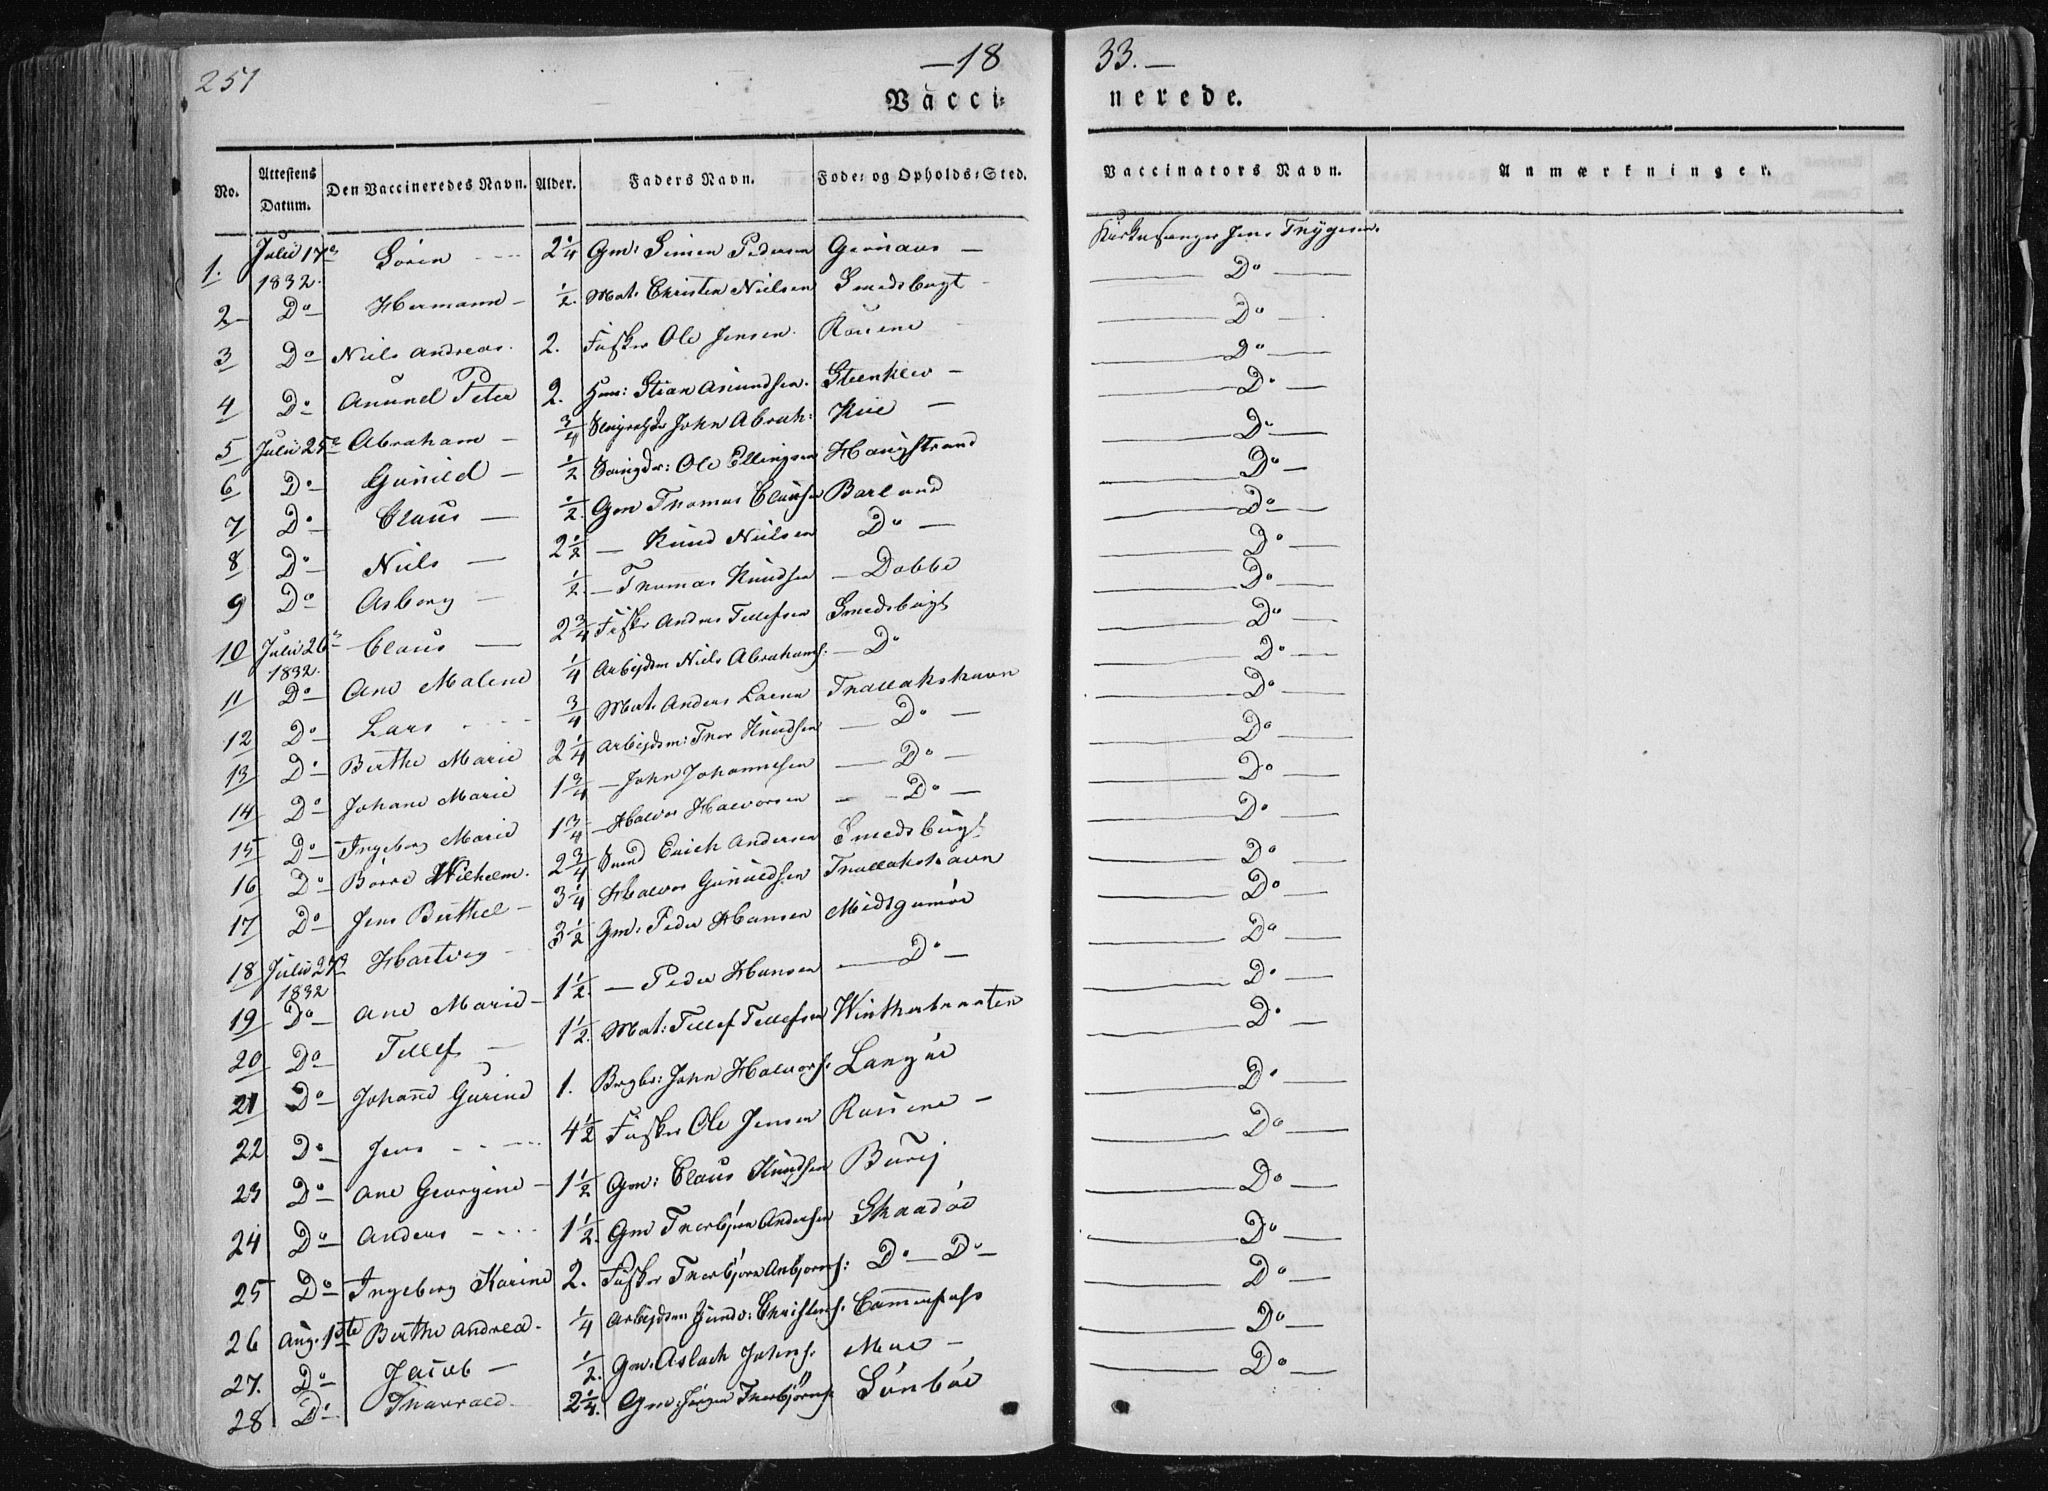 251
—18
33.—
Vacci=
nerede.
No. Attestens Datum. Den Vaccineredes Navn. Alder. Faders Navn. Føde= og Opholds=Sted. Vaccinators Navn. Anmærkninger.
1. Julii 17de 1832. Søren 2 1/4 Gm: Simen Pedersen Kirkesanger Jens Trygesen.
2 Do Hermann — 1/2. Mat: Christen Nielsen Smedsbugt — Do
3 Do Niels Andreas. 2. Fisker Ole Jensen. Rørene — Do
4 Do Amund Peter 2. Huus: Stian Amundsen. Steenklev — Do
5 Julii 25de Abraham — 3/4 John Abrah: Kiie — Do
6 Do Gunild — 1/2 Ole Ellingsen Haugstrand Do
7 Do Claus — 1/2. Gm Thomas Clausen Barland Do
8 Do Niels — 2 1/2 — Knud Nielsen Do — Do
9 Do Asborg — 1/2. — Thomas Knudsen — Dobbe Do
10 Julii 26de 1832. Claus — 2 3/4 Fisker Anders Tellefsen Smedsbugt Do
11 Do Ane Malene 1/4 Arbejdsm Niels Abrahams. — Do Do
12 Do Lars 3/4 Mat. Anders Larsen Thrallakshavn Do
13 Do Berthe Marie 2 1/4 Arbejdsm: Thor Knudsen — Do — Do
14 Do Johane Marie 1 3/4 — John Johannesen — Do — Do
15 Do Ingeborg Marie 1 3/4 — Halvor Halvorsen — Do — Do
16 Do Børre Wilhelm. 2 3/4 Erich Andersen Smedsbugt Do
17 Do Jens Berthel — 3 1/4 Halvor Gunildsen Thrallakshavn Do
18 Julii 27de 1832 Hartvig — 3 1/2 Gm: Peder Hansen Do
19 Do Ane Marie — 1 1/2. — Peder Hansen — Do — Do
20 Do Tellef — 1 1/2. Mat: Tellef Tellefsen Do
21 Do Johanne Gurine 1. John Halvors. Langöe Do
22 Do Jens 4 1/2 Fisker Ole Jensen Rørene — Do
23 Do Ane Georgine — 1 1/2 Gm: Claus Knudsen Do
24 Do Anders 1 1/2. Gm Thorbjørn Andersen Skaadøe Do
25 Do Ingeborg Karine 2. Fisker Thorbjørn Anbjørns: Do — Do — Do
26 Aug. 1ste Berthe Andrea. 1/4 Arbejdsm: Gundr: Christens. Do
27. Do Jacob — 1/2. Gm. Aslach Johns. Moe — Do
28 Do Tharrald 2 1/4. Gm: Jørgen Thorbjørns: Sønbøe Do